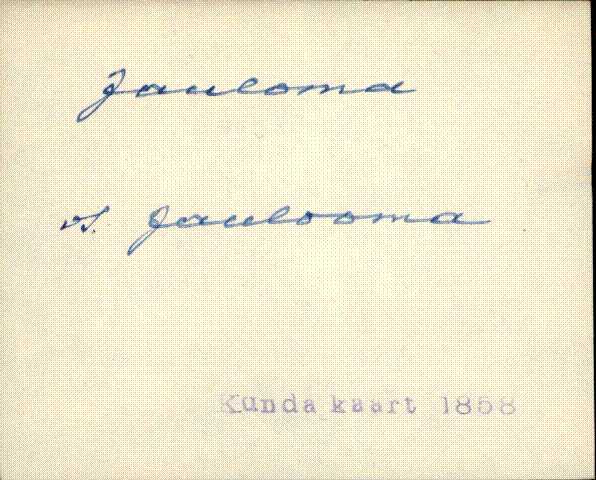 Jauloma
vt. Jaulooma
Kunda kaart 1858